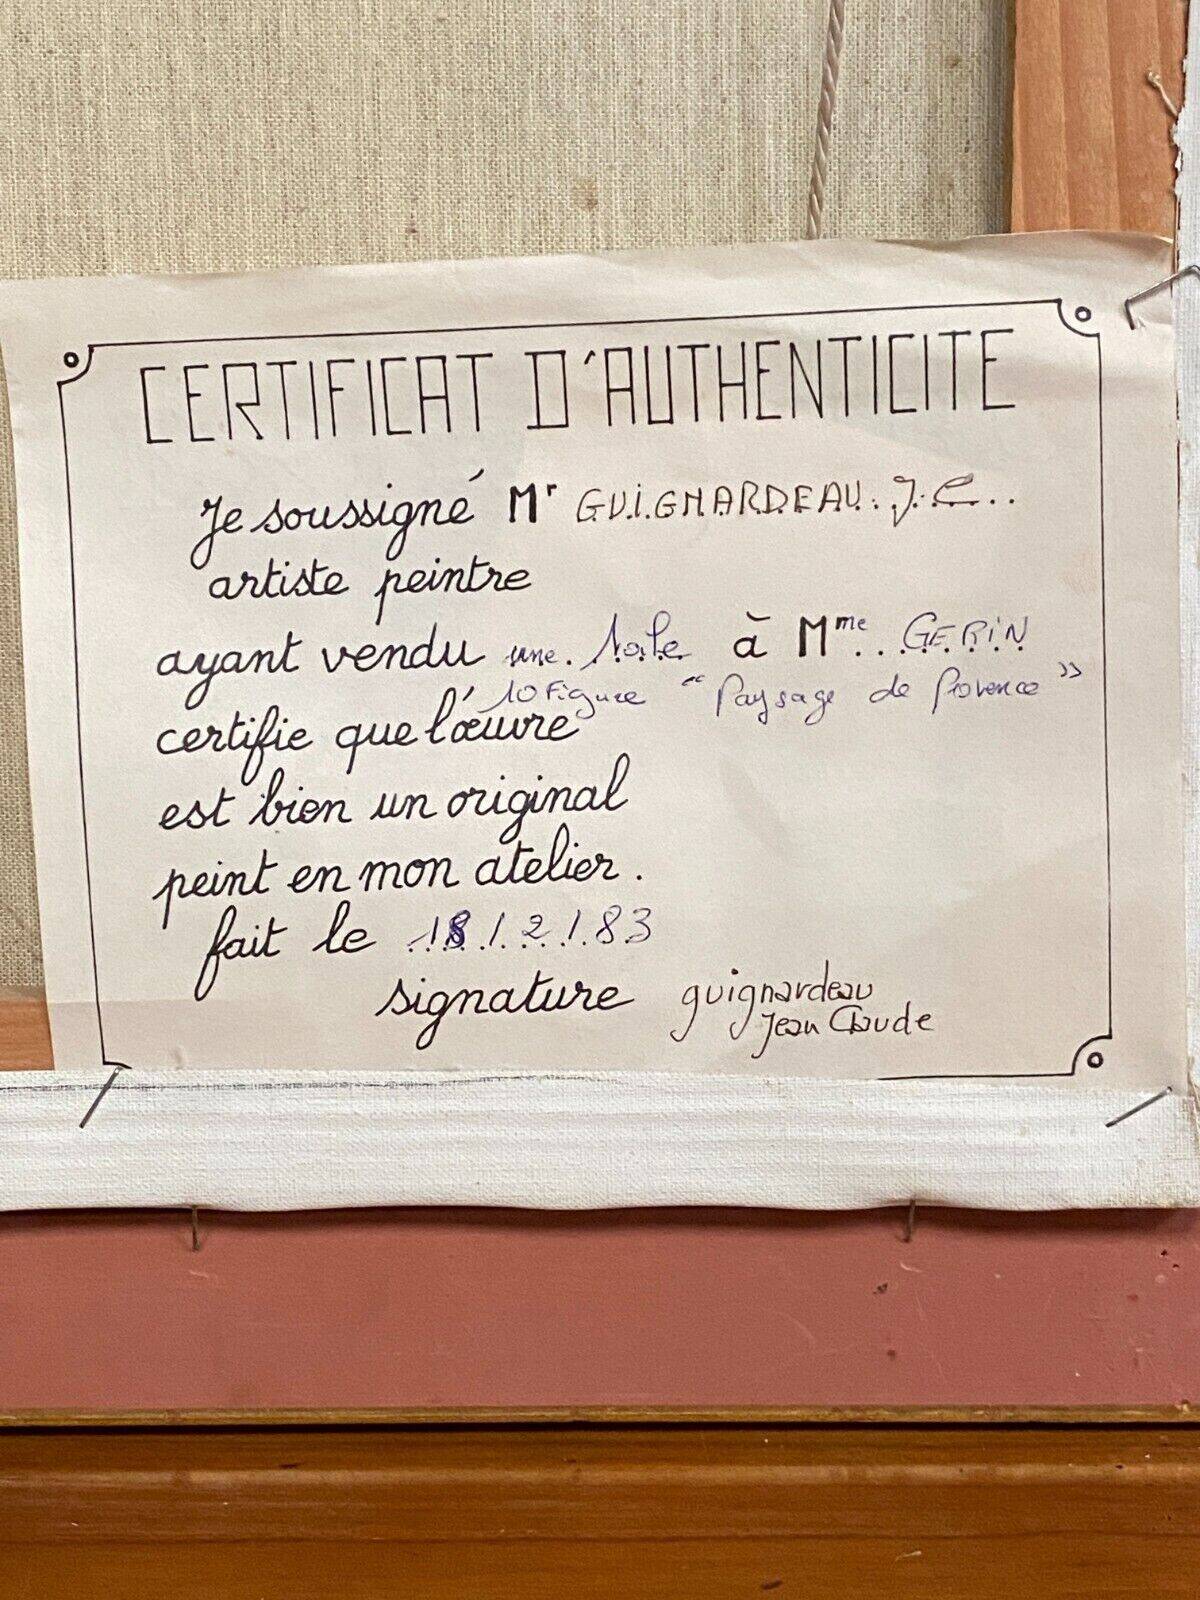 CERTIFICAT D'AUTHENTICITE
Je soussigné Mr GUIGNARDEAU. J. C...
artiste peintre
ayant vendu une toile à Mme...GERIN
10 Figure " Paysage de Provence "
certifie que l'œuvre
est bien un original
peint en mon atelier.
fait le 18/12/83
signature guignardeau
Jean Claude